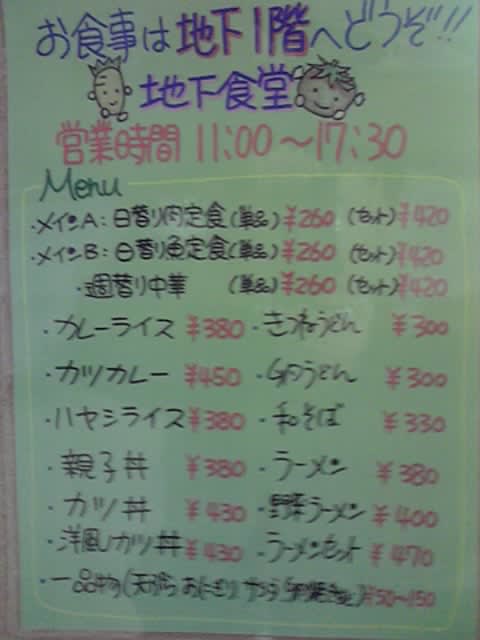 お食事は地下1階へどうぞ!!
地下食堂
営業時間 11:00〜17:30
Menu
・メインA:日替り肉定食(単品)¥260 (セット)¥420
・メインB:日替り魚定食(単品)¥260 (セット)¥420
・週替り中華 (単品)¥260 (セット)¥420
・カレーライス ¥380 ・きつねうどん ¥300
・カツカレー ¥450 ・肉うどん ¥300
・ハヤシライス ¥380 ・和そば ¥330
・親子丼 ¥380 ・ラーメン ¥380
・カツ丼 ¥430 ・野菜ラーメン ¥400
・洋風カツ丼 ¥430 ・ラーメンセット ¥470
・一品物(天ぷら おにぎり サラダ ¥50〜150